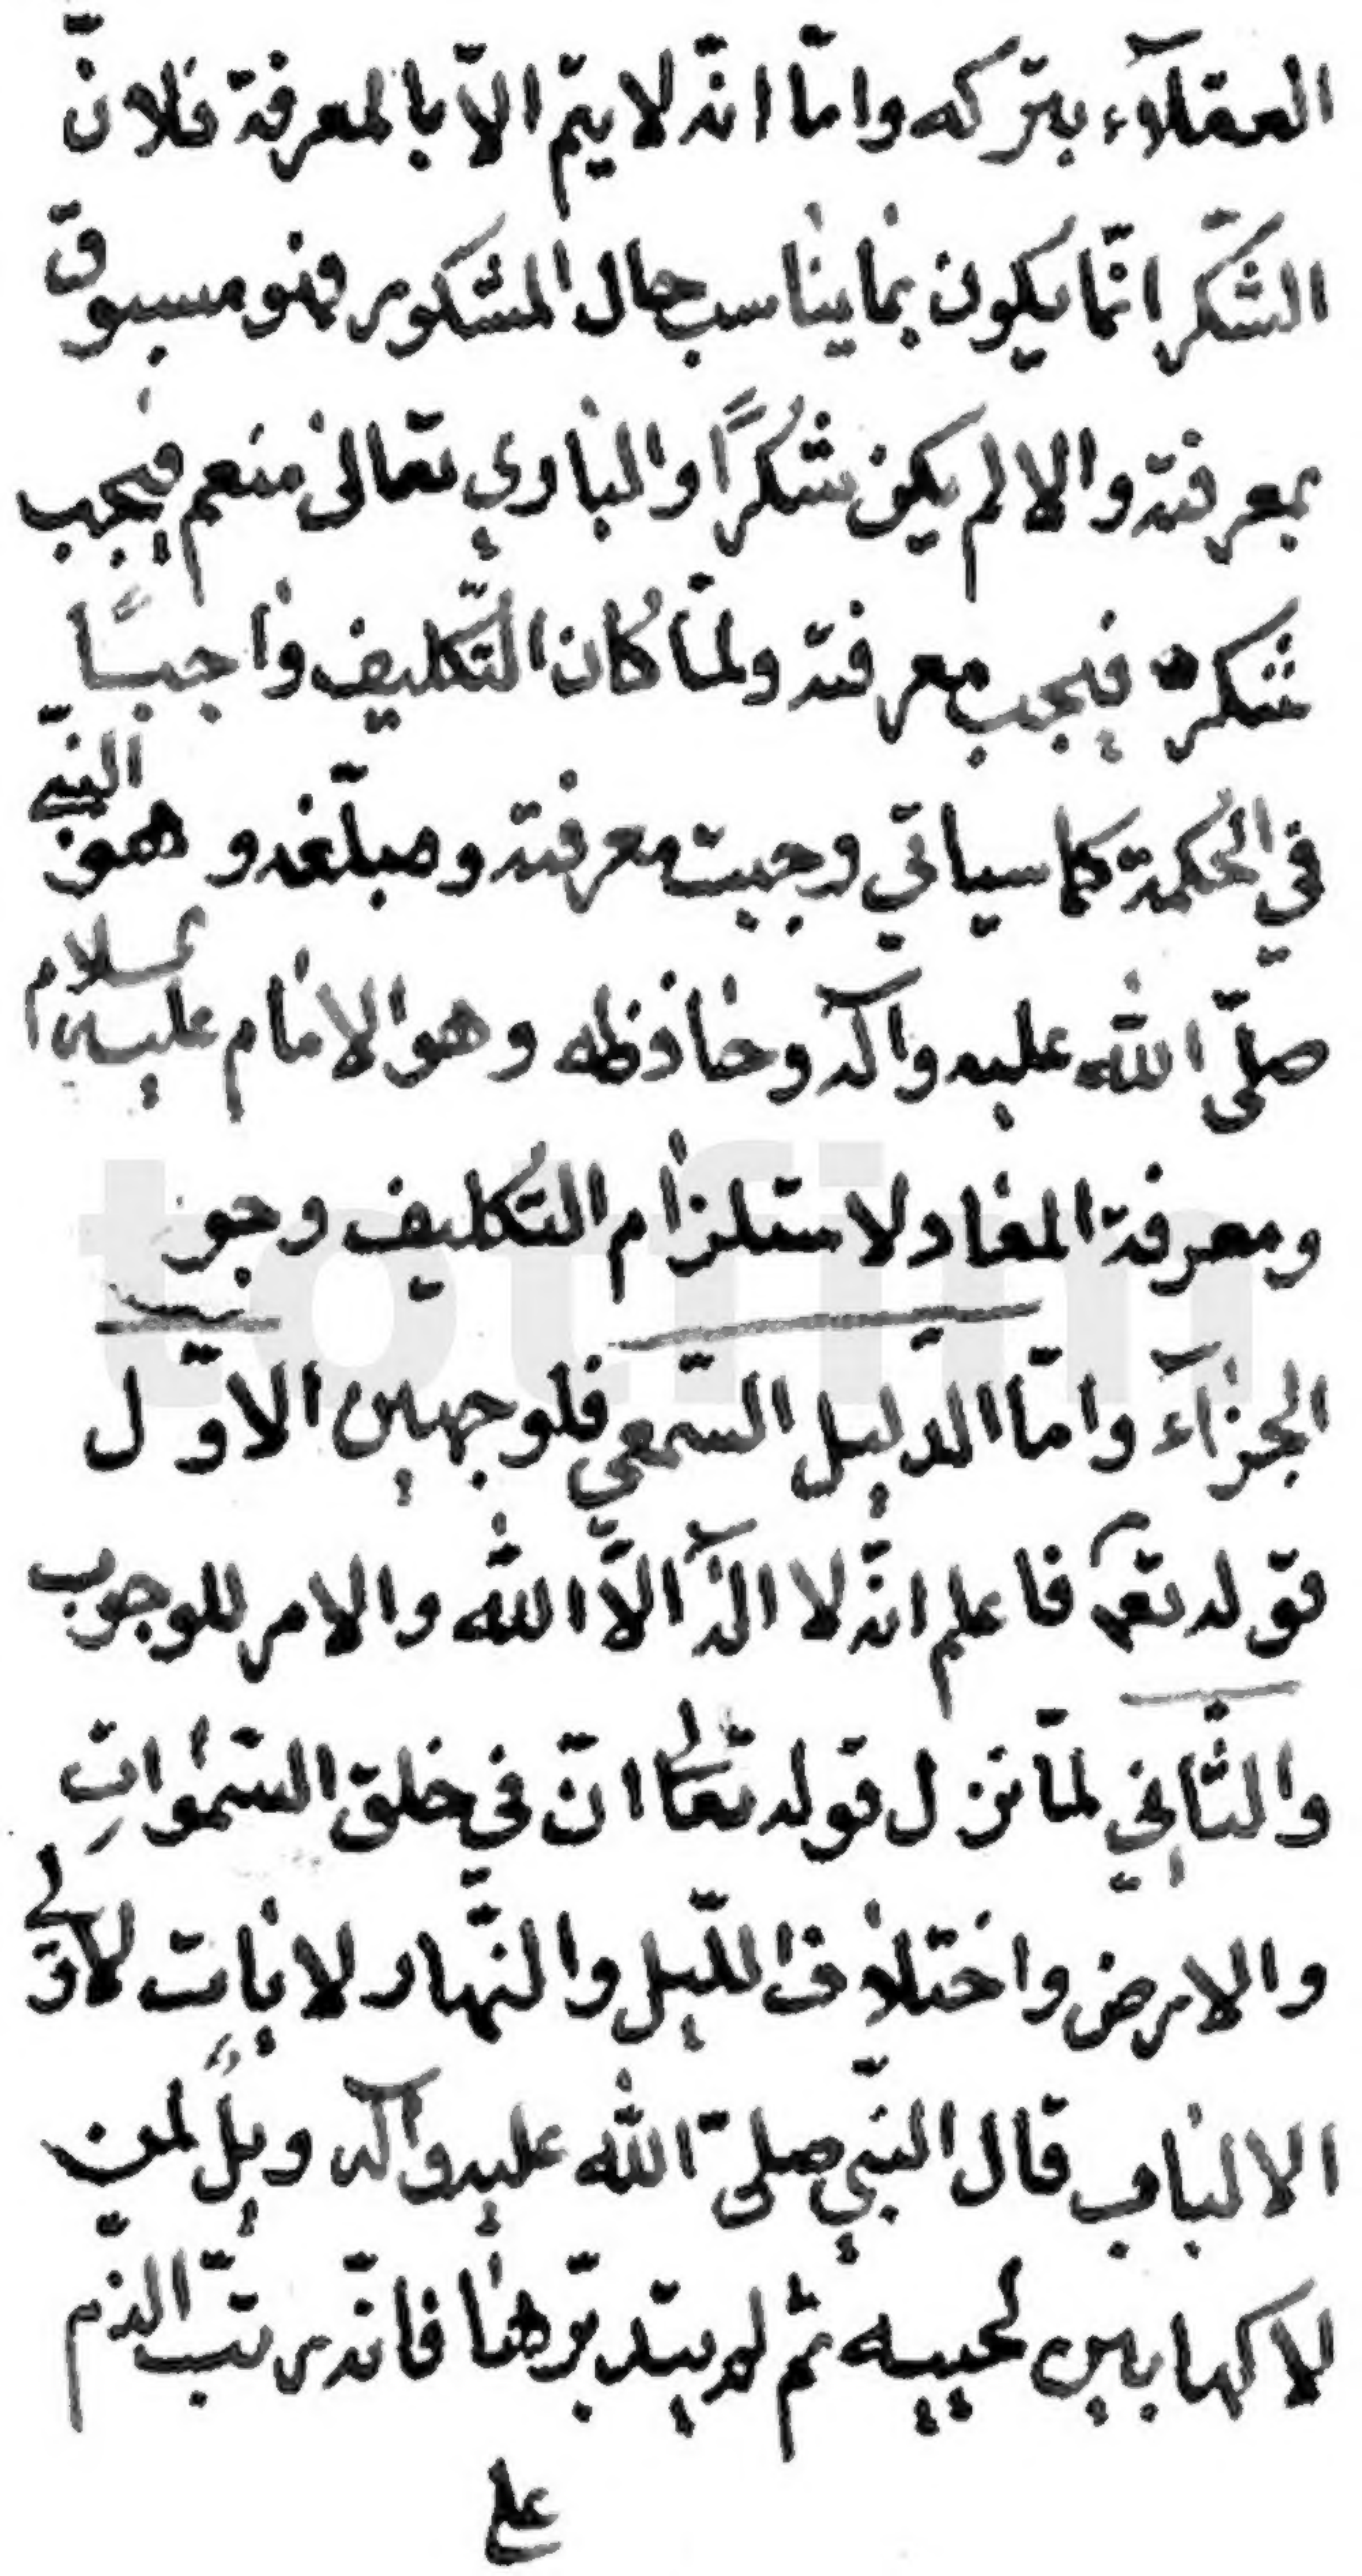 العقلآء بتركه وامّا انّه لا يتم الّا بالمعرفة فلانّ
الشّكر انّما يكون بما يناسب حال المشكور فهو مسبوق
بمعرفته والا لم يكن شكرًا والباري تعالى منعم فيجب
شكره فيجب معرفته ولمّا كان التّكليف واجبًا
في الحكمة كما سياتي وجبت معرفته ومبلّغه وهو النبيّ
صلّى الله عليه وآله وحافظه وهو الامام عليه السلام
ومعرفة المعاد لاستلزام التكليف وجو
الجزآء وامّا الدليل السّمعي فلوجهين الاوّل
قوله تعم فاعلم انّه لا الٓه الّا الله والامر للوجوب
والثّاني لمّا نزل قوله تعالى انّ في خلق السّموات
والارض واختلاف اللّيل والنّهار لايات لاولي
الالباب قال النبيّ صلّى الله عليه وآله ويلٌ لمن
لاكها بين لحييه ثم لم يتدبّرها فانّه رتّب الذّم
على
totfim